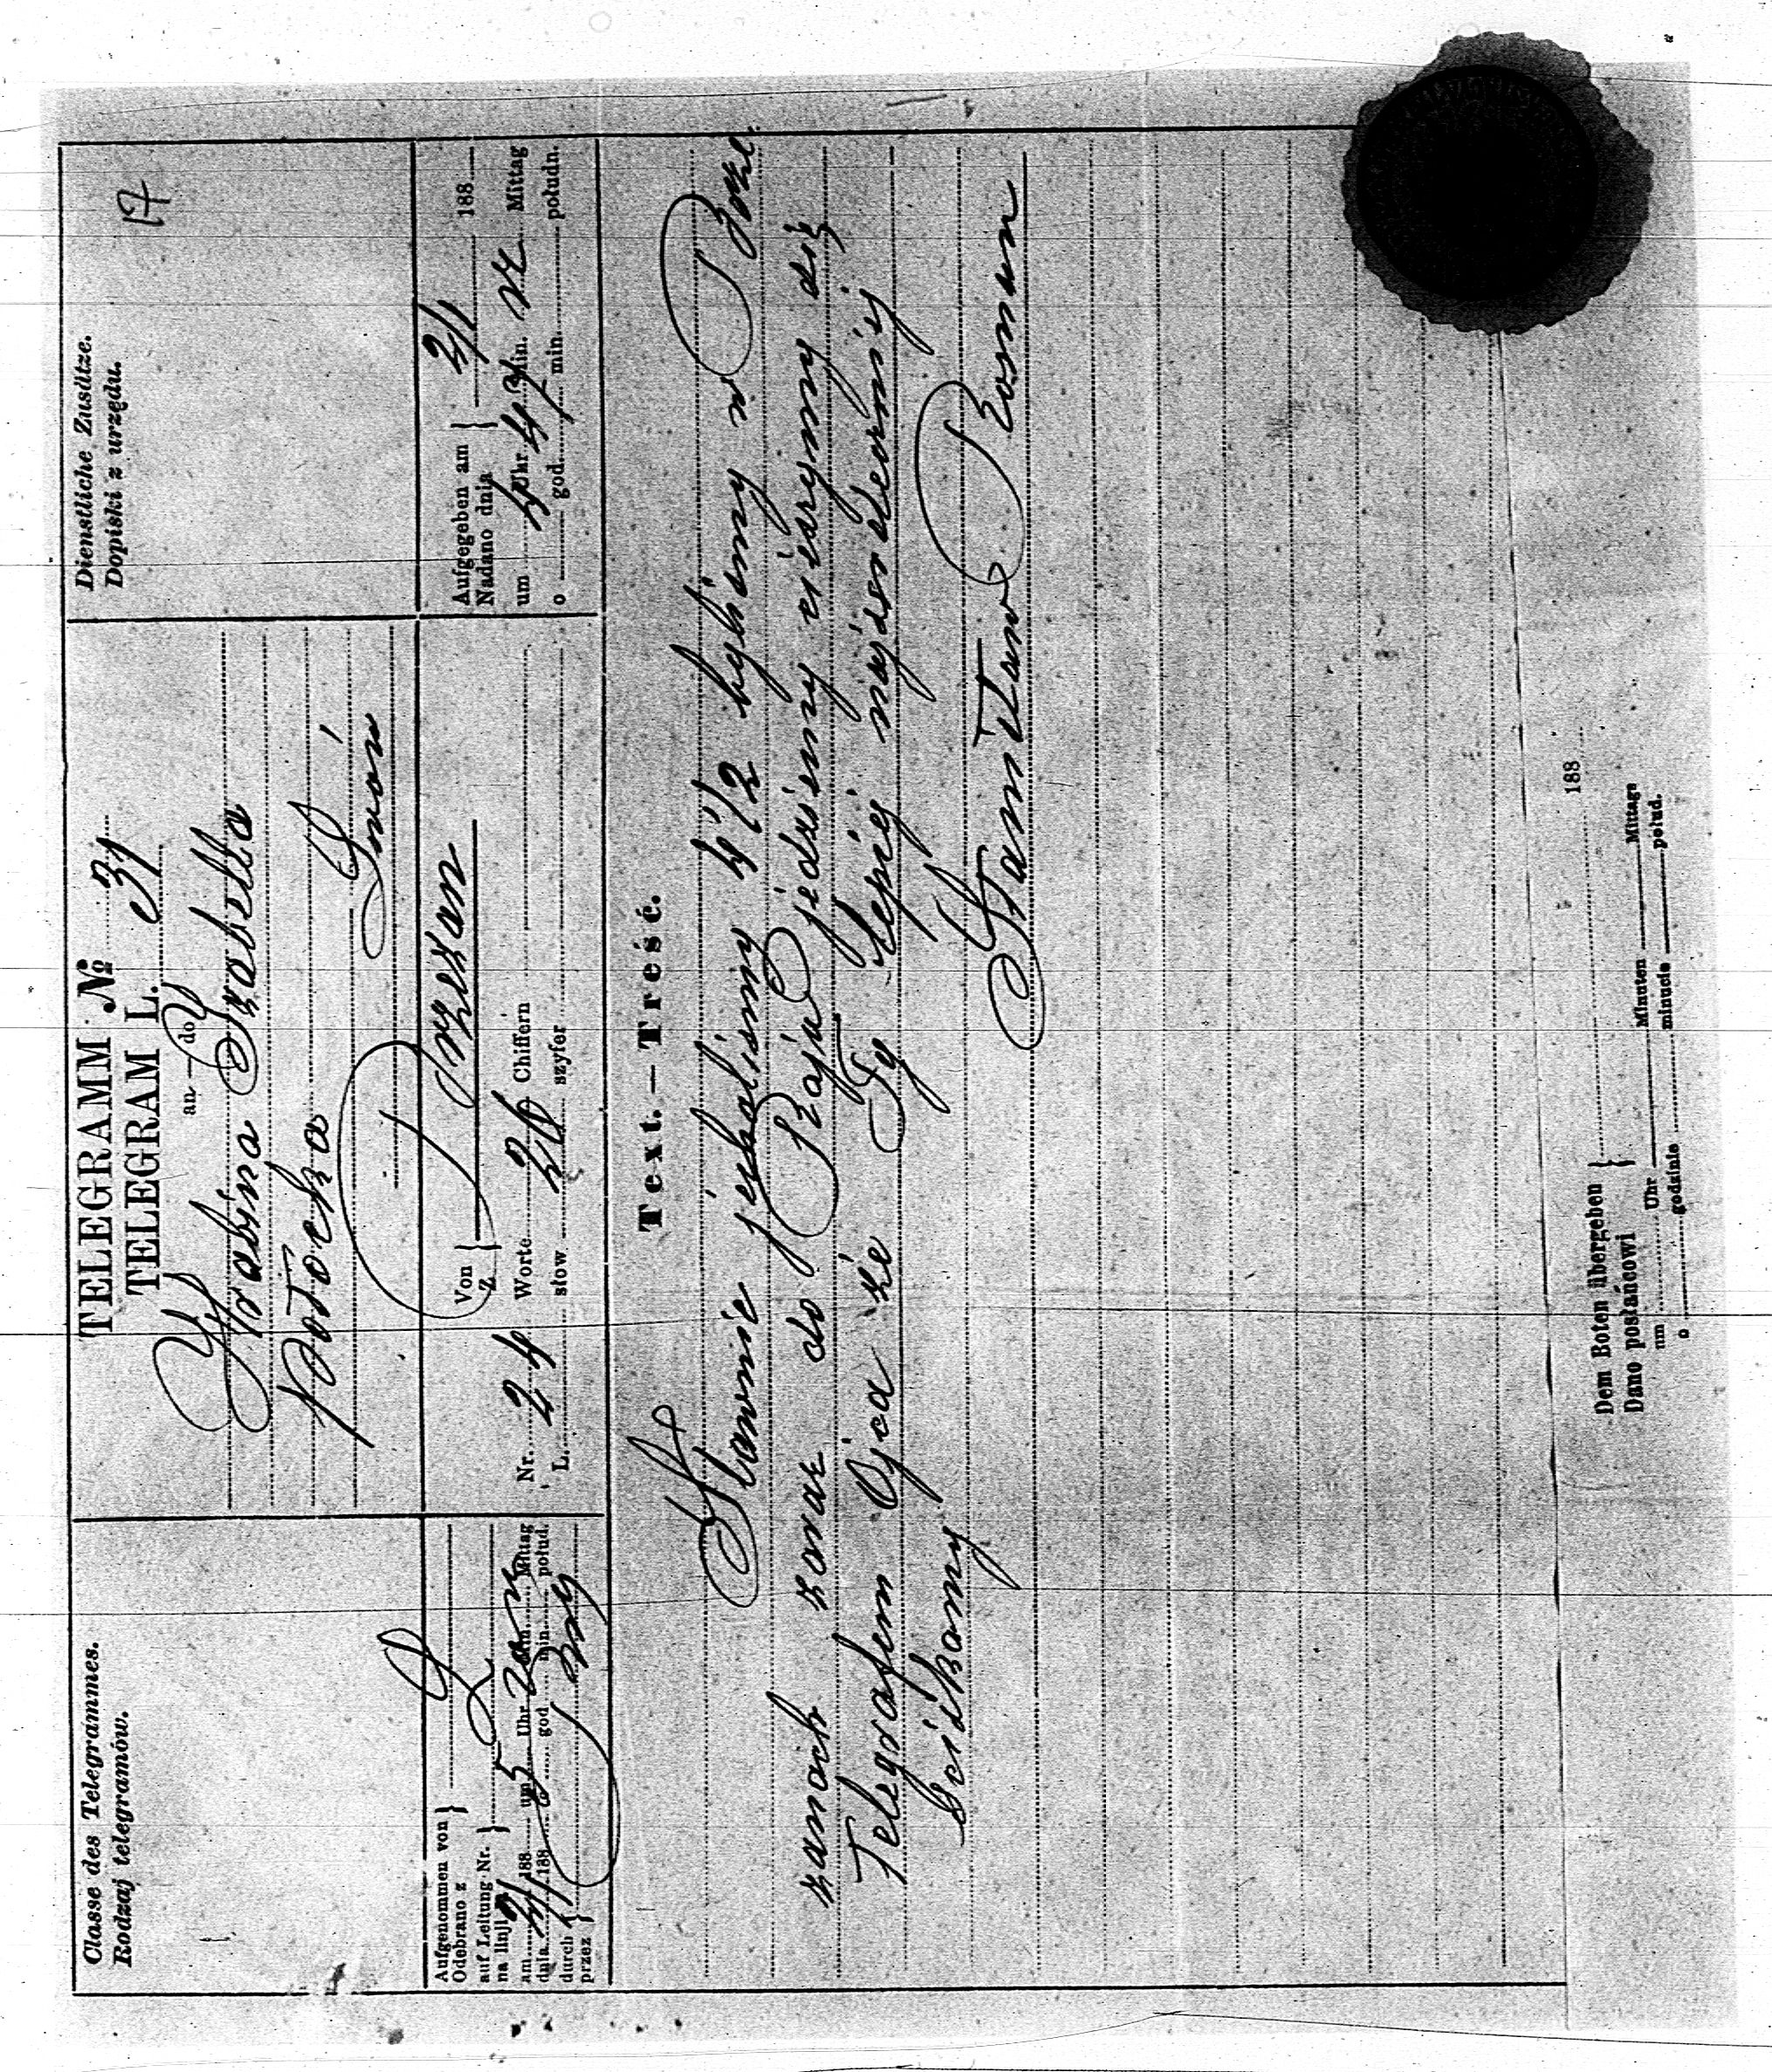 Classe des Telegrammes.
Rodzaj telegramów.
TELEGRAMM № 31
TELEGRAM L.
an — do
Hrabina Izabella
Potocka
Lwów
Dienstliche Zusätze.
Dopiski z urzędu.
17
Aufgenommen von }
Odebrano z
auf Leitung Nr. }
na linji
am 188 um 5 Uhr Min. Mittag
dnia 188 god. min. połud.
durch }
przez }
Von }
Z
Brzezan
Nr. 24 Worte 26 Chiffern
L. słow szyfer
Aufgegeben am }
Nadano dnia
2/1 188
um 4 Uhr Min. Mittag
o god. min. połudn.
Text. — Treść.
Sławnie jechaliśmy 4 1/2 byliśmy w Brze
zanach zaraz do Raju jedziemy cieszymy się
Telegrafem Ojca że Ty lepiej najserdeczniej
ściskamy
Stanisław Roman
Dem Boten übergeben }
Dano posłańcowi }
188
um Uhr Minuten Mittags
o godzinie minucie połud.